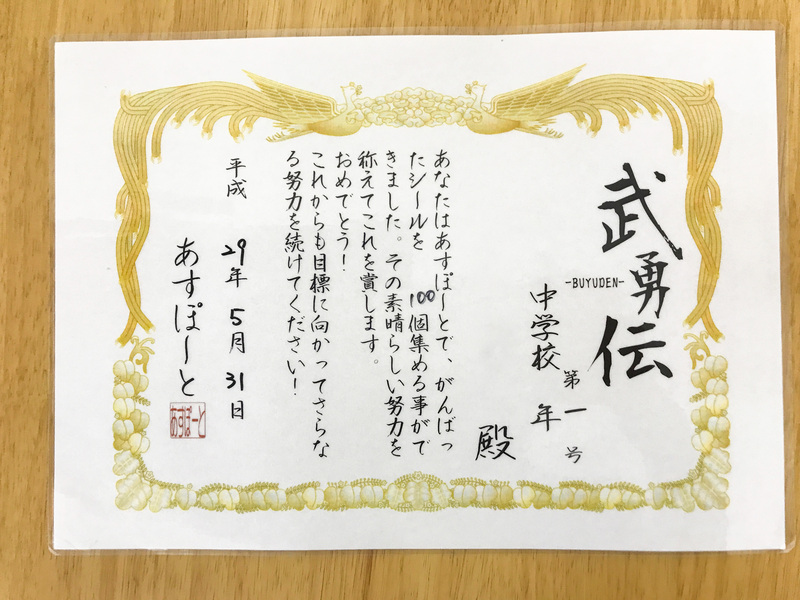 武勇伝
-BUYUDEN-
第一号
中学校 年
殿
あなたはあすぽーとで、がんばっ
たシールを100個集める事がで
きました。その素晴らしい努力を
称えてこれを賞します。
おめでとう!
これからも目標に向かってさらな
る努力を続けてください!
平成 29年 5月 31日
あすぽーと
あすぽーと